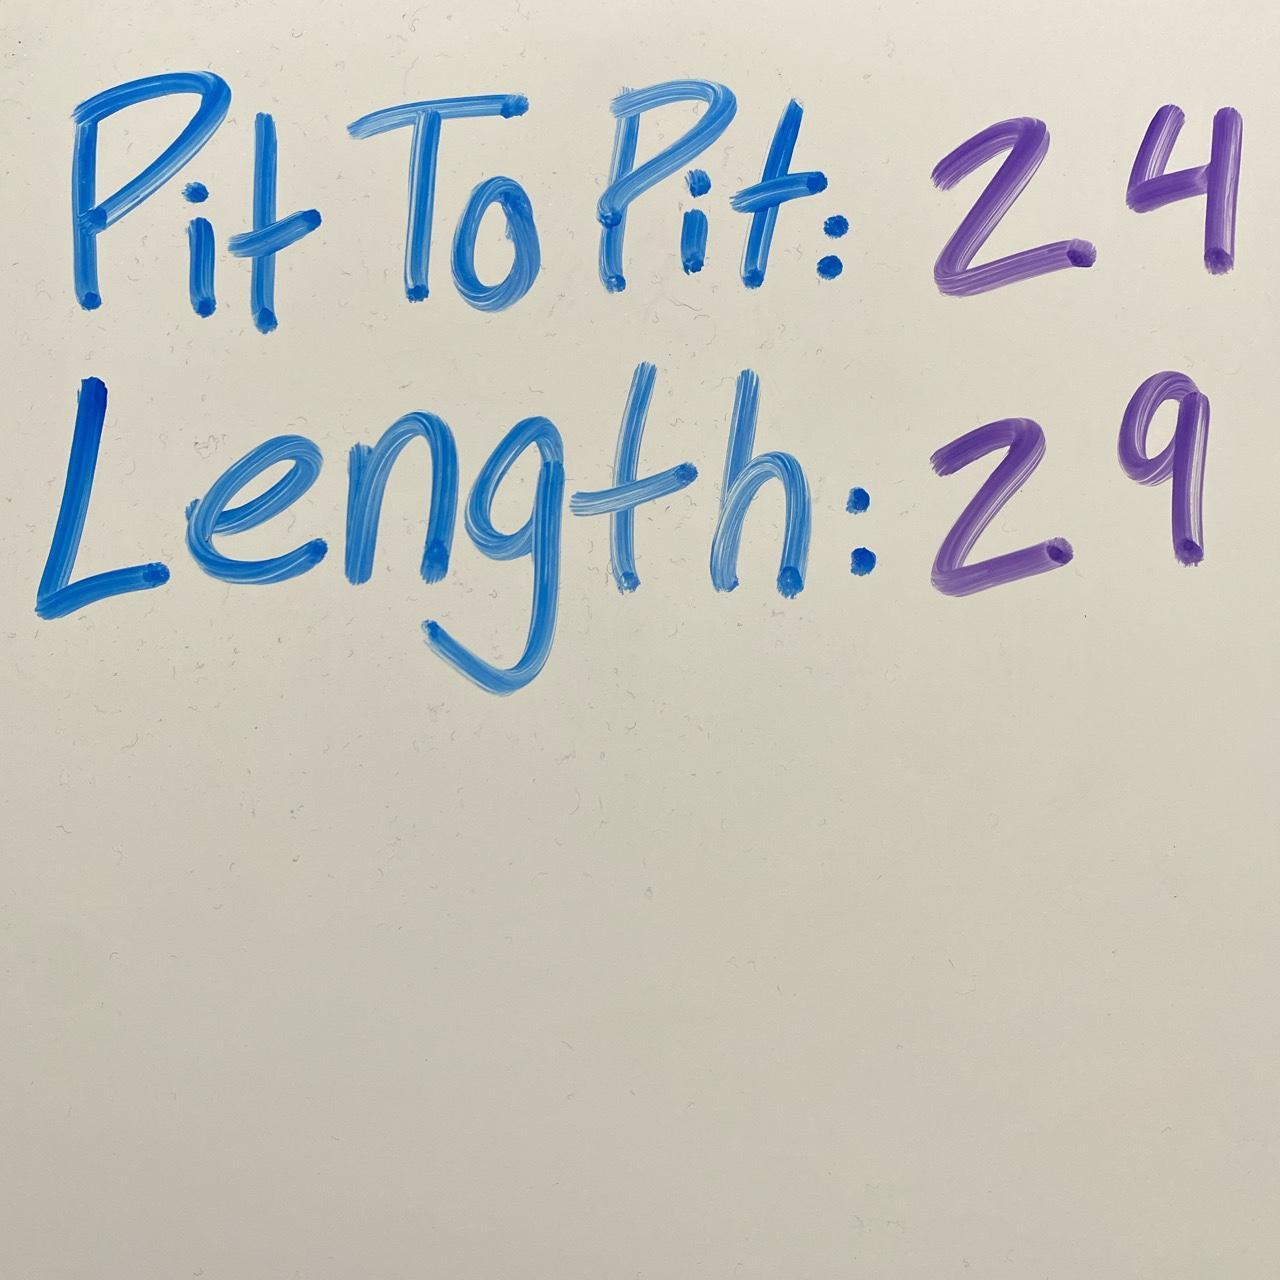 Pit To Pit: 24
Length: 29